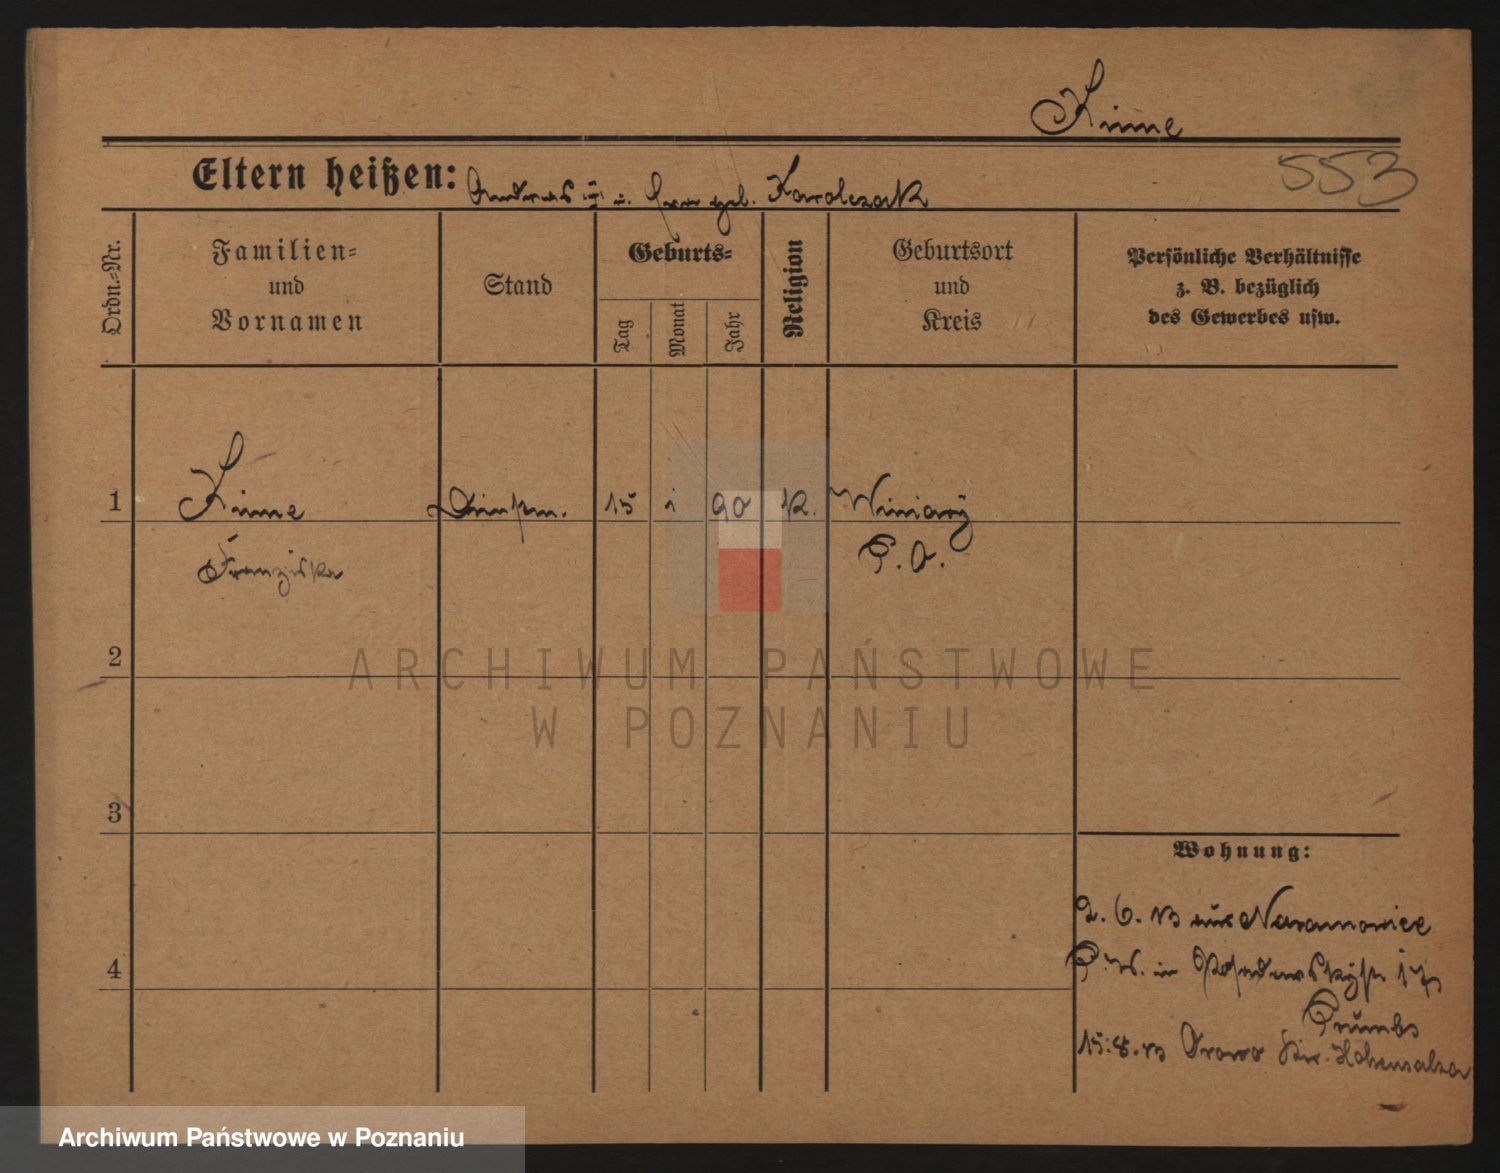 Kinne
553
Eltern heißen: Andreas u. geb. Karolczak
Ordn.-Nr.
Familien-
und
Vornamen
Stand
Geburts-
Tag
Monat
Jahr
Religion
Geburtsort
und
Kreis
Persönliche Verhältnisse
z. B. bezüglich
des Gewerbes usw.
1
Kinne
15 1 90 K. Winiary
Franziska
P. O.
2
ARCHIWUM PAŃSTWOWE
W POZNANIU
3
Wohnung:
2. 6. 13 aus Naramowice
4
P. W. in
15. 8. 13 Hohensalza
Archiwum Państwowe w Poznaniu